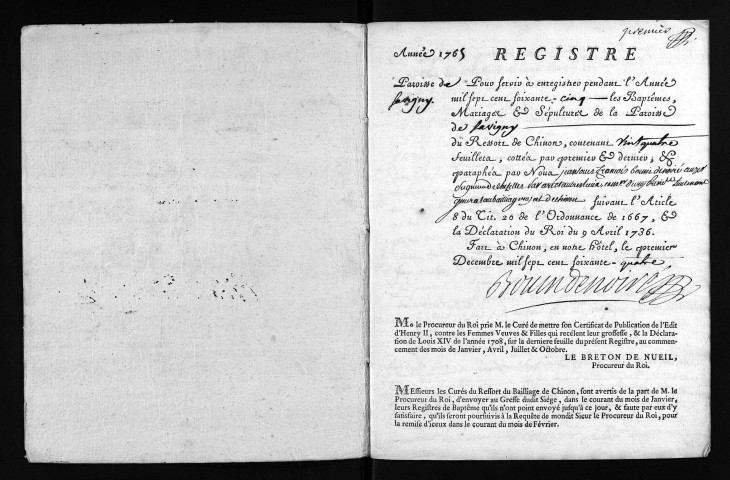 premier
Année 1765 REGISTRE
Paroisse de Savigny.
Pour servir à enregistrer pendant l'Année
mil sept cent soixante-cinq les Baptêmes,
Mariages & Sépultures de la Paroisse
de Savigny
du Ressort de Chinon, contenant vint quatre
feuillets, cottés par premier & dernier, &
paraphés par Nous jean louis françois
suivant l'Article
8 du Tit. 20 de l'Ordonnance de 1667, &
la Déclaration du Roi du 9 Avril 1736.
Fait à Chinon, en notre hôtel, le premier
Decembre mil sept cent soixante-quatre
Mr le Procureur du Roi prie M. le Curé de mettre son Certificat de Publication de l'Edit
d'Henry II, contre les Femmes Veuves & Filles qui recélent leur grossesse, & la Déclara-
tion de Louis XIV de l'année 1708, sur la derniere feuille du présent Registre, au commen-
cement des mois de Janvier, Avril, Juillet & Octobre.
LE BRETON DE NUEIL,
Procureur du Roi.
MEssieurs les Curés du Ressort du Bailliage de Chinon, sont avertis de la part de M. le
Procureur du Roi, d'envoyer au Greffe dudit Siége, dans le courant du mois de Janvier,
leurs Registres de Baptême qu'ils n'ont point envoyé jusqu'à ce jour, & faute par eux d'y
satisfaire, qu'ils seront poursuivis à la Requête de mondit Sieur le Procureur du Roi, pour
la remise d'iceux dans le courant du mois de Février.